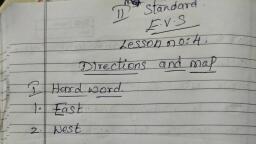 II Standard
E.V.S
Lesson no:4.
Directions and map
I Hard word
1. East
2. West